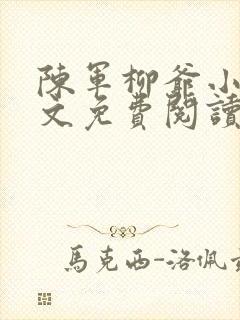 陳軍柳爺小
文免費閱讀
馬克西-洛佩